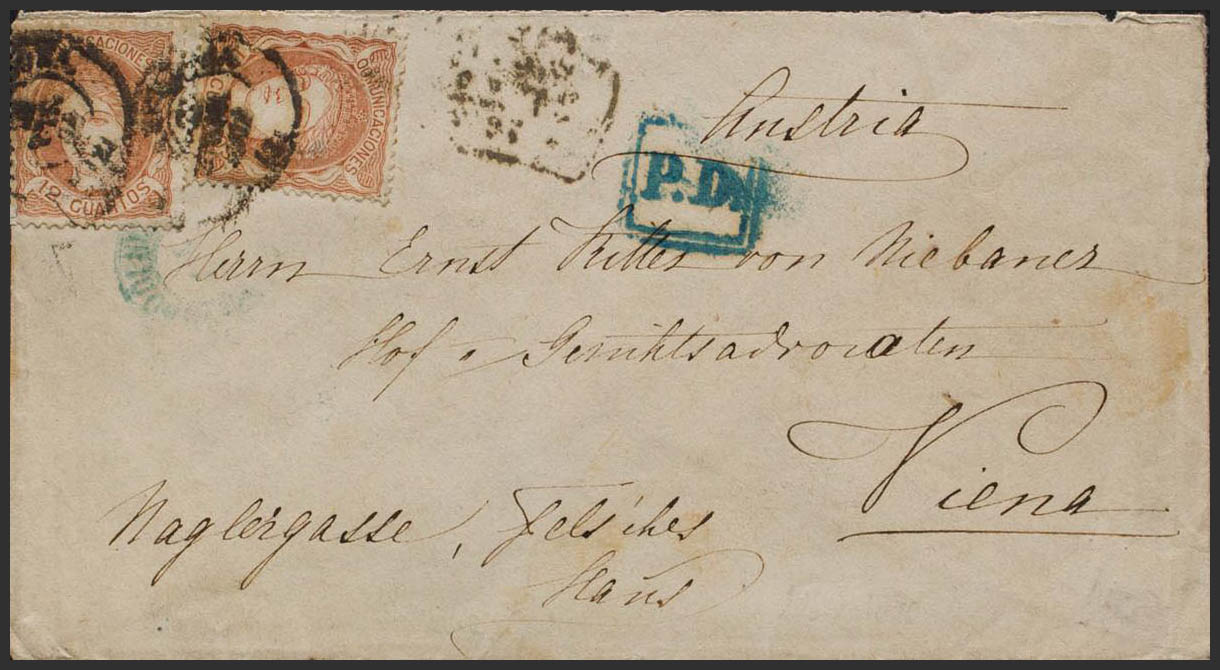 COMUNICACIONES
12 CUARTOS
COMUNICACIONES
Austria
P.D.
Herrn Ernst Ritter von Niebauer
Hof u Gerichtsadvocaten
Viena
Naglergasse, Fels'ches
Haus